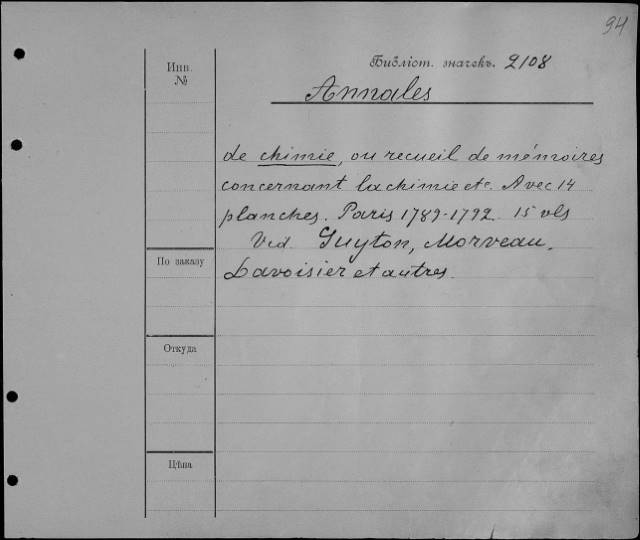 94
Инв.
№
Библіот. значекъ. 2108
Annales
de chimie, ou recueil de mémoires
concernant la chimie etc. Avec 14
planches. Paris 1789-1792. 15 vls
Vid. Guyton, Morveau,
Lavoisier et autres.
По заказу
Откуда
Цѣна